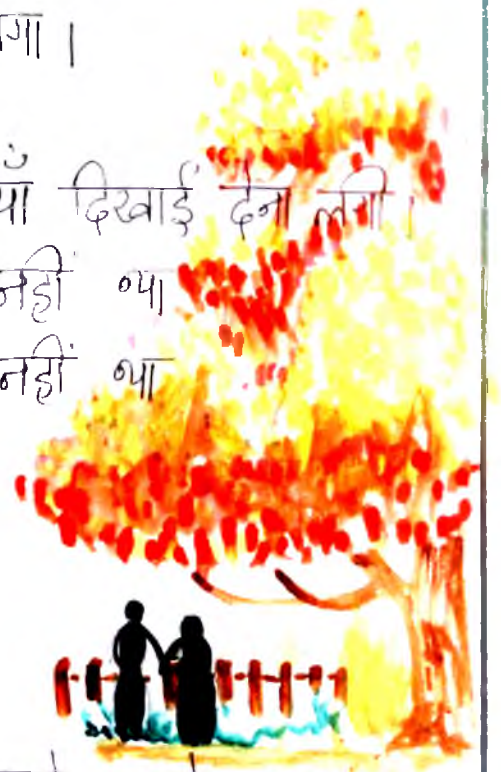 गा ।
याँ दिखाई देना लगी ।
नहीं था
नहीं था